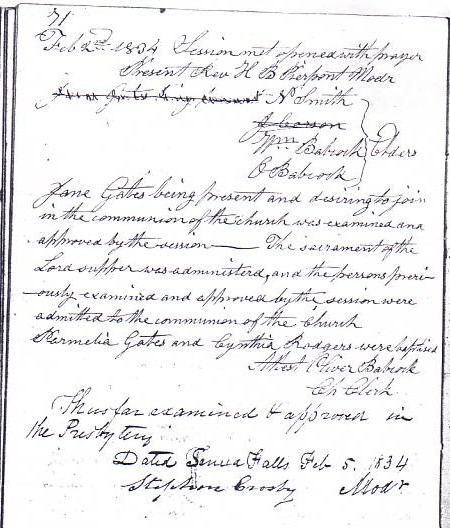 71
Feb 2nd 1834 Session met opened with prayer
Present Rev H B Pierpont Modr
N Smith
J Carson
Wm Babcock Elders
O Babcock
Jane Gates being present and desiring to join
in the communion of the church was examined and
approved by the session — The sacrament of the
Lord supper was administerd, and the persons previ-
ously examined and approved by the session were
admitted to the communion of the Church
Permelia Gates and Cynthia Rodgers were baptised
Attest Oliver Babcock
Ch Clerk
Thus far examined & approved in
the Presbytery
Dated Seneca Falls Feb 5. 1834
Stephen Crosby Modr